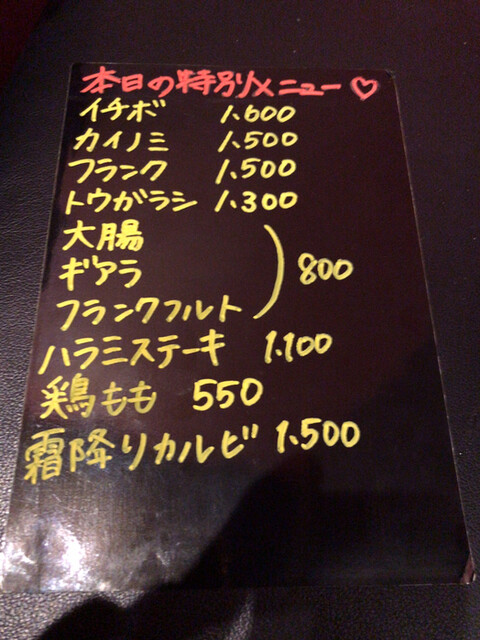 本日の特別メニュー♡
イチボ 1.600
カイノミ 1.500
フランク 1.500
トウガラシ 1.300
大腸
ギアラ 800
フランクフルト
ハラミステーキ 1.100
鶏もも 550
霜降りカルビ 1.500